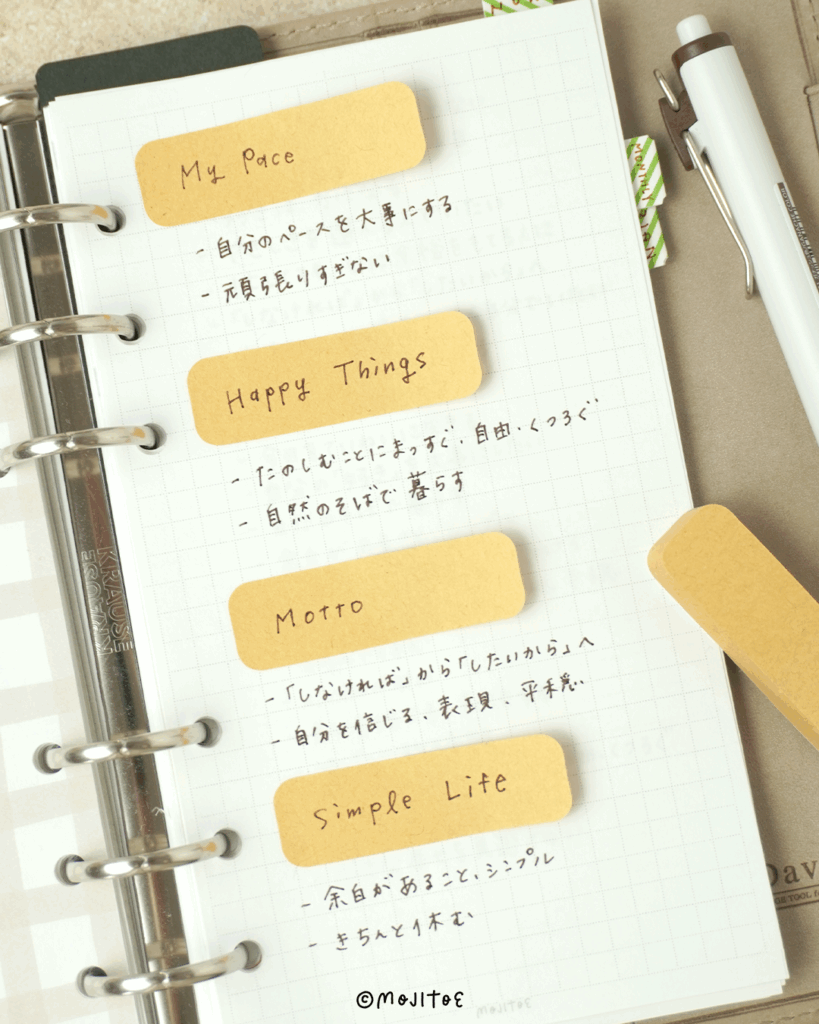 My Pace
- 自分のペースを大事にする
- 頑張りすぎない
MONTHLY
Happy Things
- たのしむことにまっすぐ、自由・くつろぐ
- 自然のそばで暮らす
KRAUSE
Motto
- 「しなければ」から「したいから」へ
- 自分を信じる、表現、平穏
Simple Life
- 余白があること、シンプル
- きちんと休む
Dav
©MOJITOE